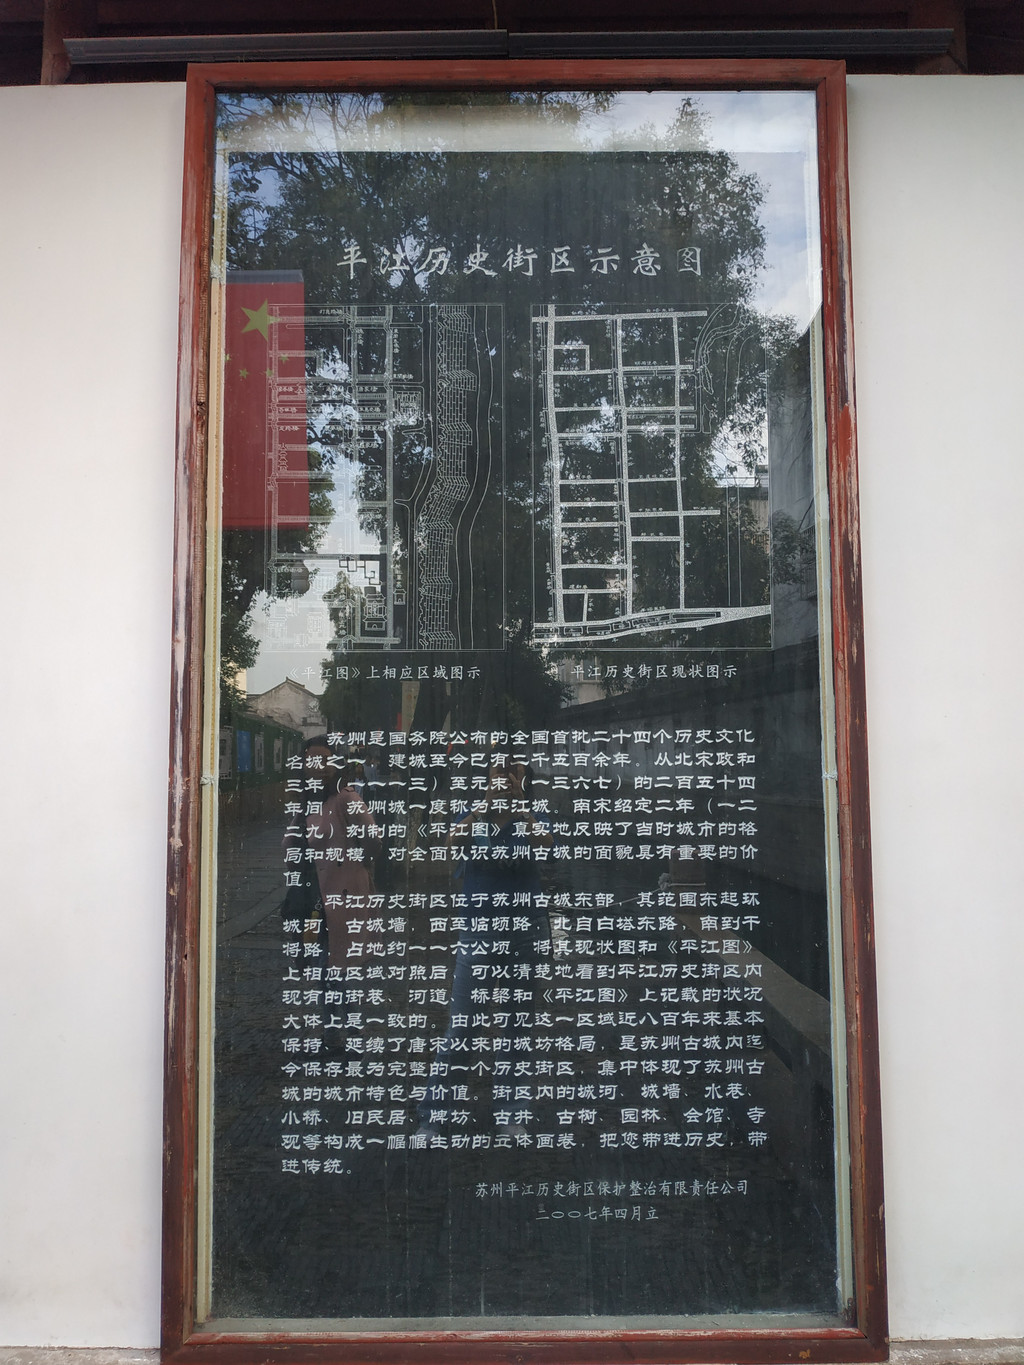 平江历史街区示意图
《平江图》上相应区域图示
平江历史街区现状图示
苏州是国务院公布的全国首批二十四个历史文化
名城之一，建城至今已有二千五百余年。从北宋政和
三年（一一一三）至元末（一三六七）的二百五十四
年间，苏州城一度称为平江城。南宋绍定二年（一二
二九）刻制的《平江图》真实地反映了当时城市的格
局和规模，对全面认识苏州古城的面貌具有重要的价
值。
平江历史街区位于苏州古城东部，其范围东起环
城河、古城墙，西至临顿路，北自白塔东路，南到干
将路，占地约一一六公顷。将其现状图和《平江图》
上相应区域对照后，可以清楚地看到平江历史街区内
现有的街巷、河道、桥梁和《平江图》上记载的状况
大体上是一致的。由此可见这一区域近八百年来基本
保持、延续了唐宋以来的城坊格局，是苏州古城内迄
今保存最为完整的一个历史街区，集中体现了苏州古
城的城市特色与价值。街区内的城河、城墙、水巷、
小桥、旧民居、牌坊、古井、古树、园林、会馆、寺
观等构成一幅幅生动的立体画卷，把您带进历史，带
进传统。
苏州平江历史街区保护整治有限责任公司
二〇〇七年四月立